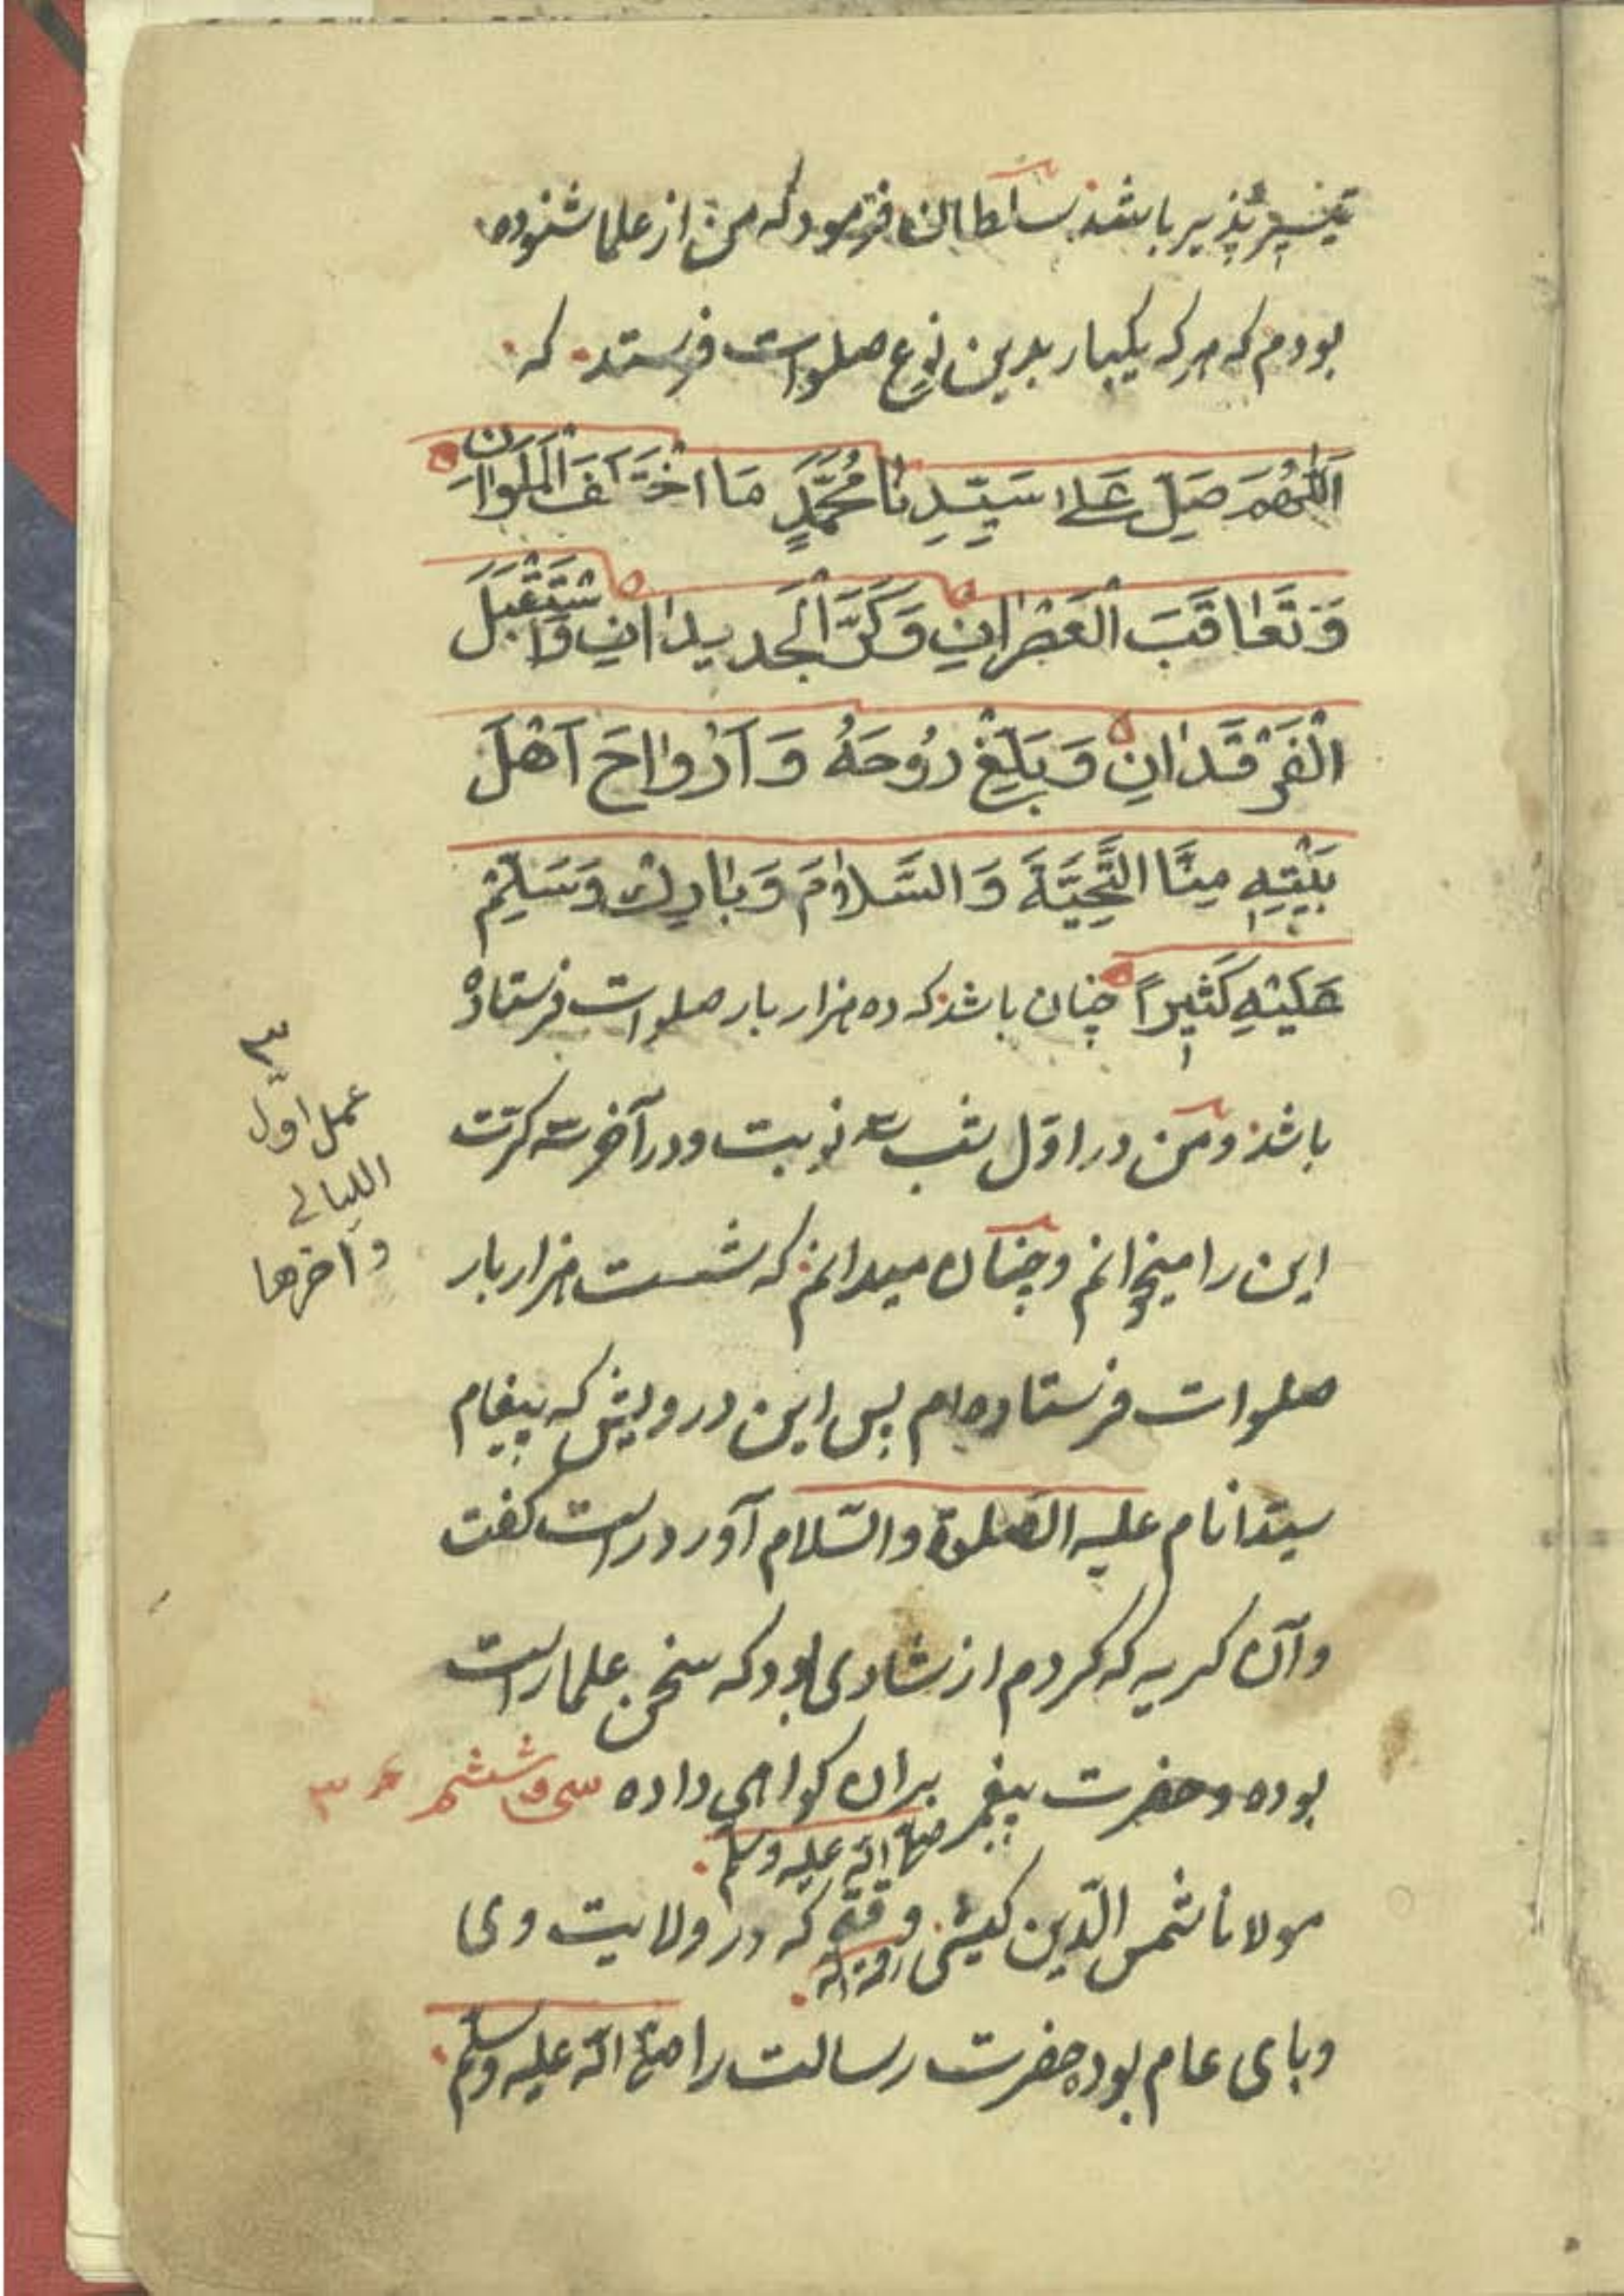 تیسیر پذیر باشد سلطان فرمود که من از علما شنوده
بودم که هرکه یکبار بدین نوع صلوات فرستد که
اَللّٰهُمَّ صَلِّ عَلٰی سَیِّدِنَا مُحَمَّدٍ مَا اخْتَلَفَ الْمَلَوَانِ
وَ تَعَاقَبَ الْعَصْرَانِ وَ کَرَّ الْجَدِیدَانِ وَاسْتَقْبَلَ
الْفَرْقَدَانِ وَ بَلِّغْ رُوحَهُ وَ اَرْوَاحَ اَهْلِ
بَیْتِهِ مِنَّا التَّحِیَّةَ وَ السَّلَامَ وَ بَارِكْ وَ سَلِّمْ
عَلَیْهِ کَثِیرًا چنان باشد که ده هزار بار صلوات فرستاده
باشد و من در اوّل شب سه نوبت و در آخر سه کرّت
این را میخوانم و چنان میدانم که شست هزار بار
صلوات فرستاده‌ام پس این درویش که پیغام
سیّد انام علیه الصّلوة والسّلام آورد راست کفت
و آن کریه که کردم از شادی بود که سخن علما راست
بوده و حضرت پیغمبر صلی الله علیه وسلم بران کواهی داده سی و ششم
مولانا شمس الدّین کیشی رحمه الله وقتی که در ولایت وی
وبای عام بود حضرت رسالت را صلی الله علیه وسلم
۳
عمل اوّل
اللیالی
وآخرها